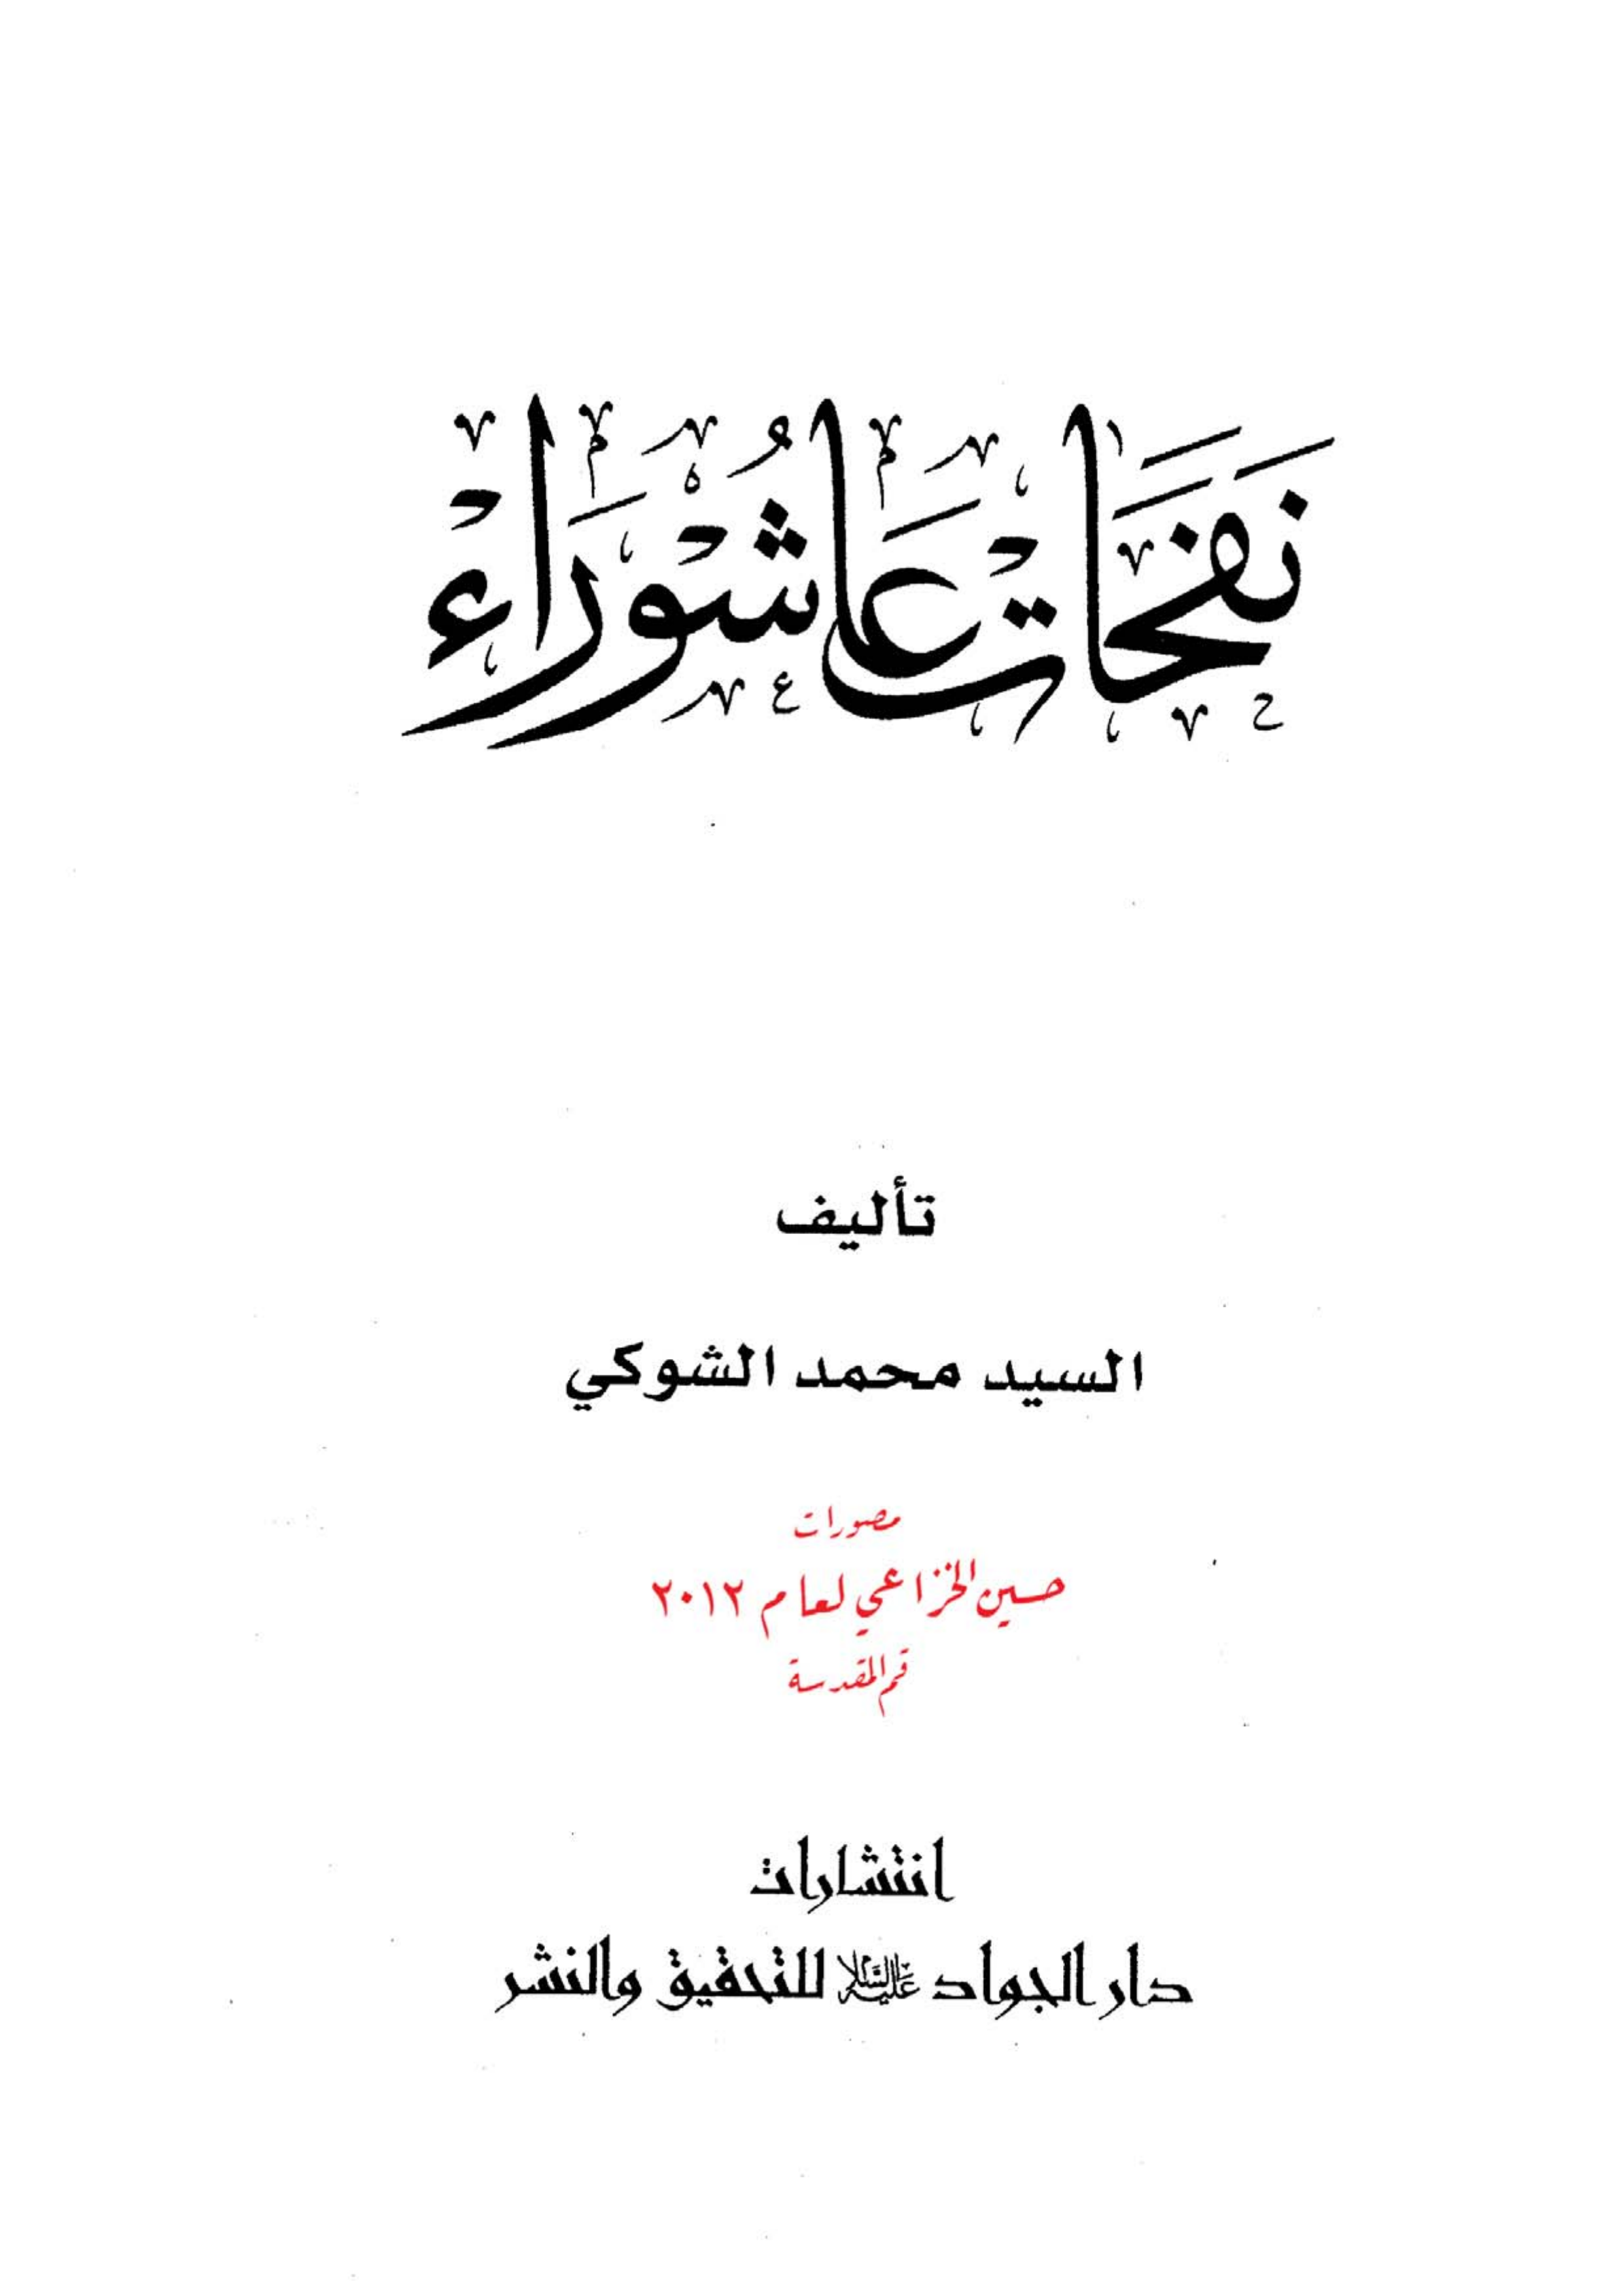 نَفَحَاتُ عَاشُورَاءَ
تأليف
السيد محمد الشوكي
مصورات
حسين الخزاعي لعام ٢٠١٢
قم المقدسة
انتشارات
دار الجواد عليه السلام للتحقيق والنشر